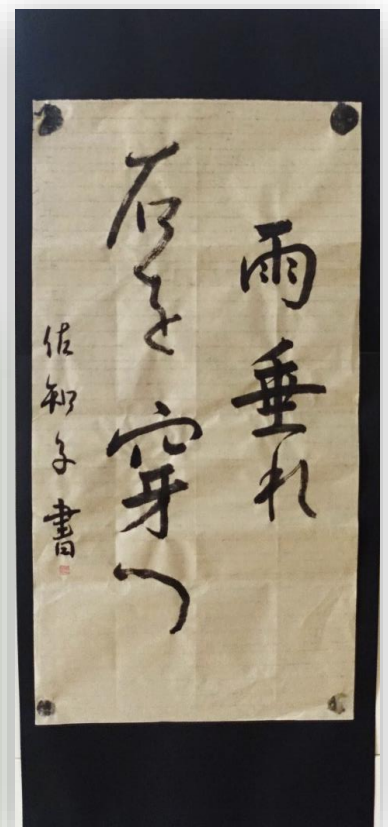 雨垂れ
石を穿つ
佐知子書